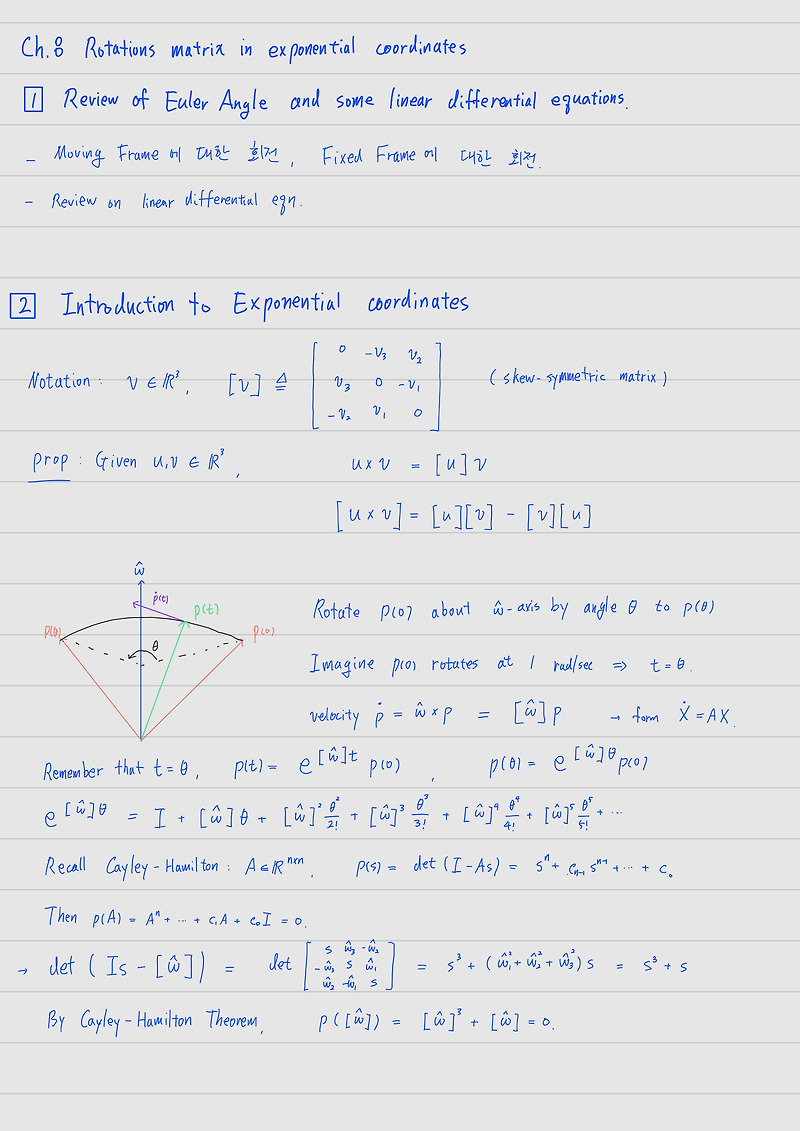 Ch.8 Rotations matrix in exponential coordinates
1 Review of Euler Angle and some linear differential equations.
- Moving Frame에 대한 회전, Fixed Frame에 대한 회전.
- Review on linear differential eqn.
2 Introduction to Exponential coordinates
Notation: v ∈ ℝ³, [v] ≜ [0 -v₃ v₂; v₃ 0 -v₁; -v₂ v₁ 0] (skew-symmetric matrix)
prop: Given u,v ∈ ℝ³, u×v = [u]v
[u×v] = [u][v] - [v][u]
ŵ
ṗ(t)
p(t)
p(θ)
θ
p(0)
Rotate p(0) about ŵ-axis by angle θ to p(θ)
Imagine p(0) rotates at 1 rad/sec ⇒ t=θ.
velocity ṗ = ŵ×p = [ŵ]p → form Ẋ=AX.
Remember that t=θ, p(t) = e^{[ŵ]t} p(0), p(θ) = e^{[ŵ]θ} p(0)
e^{[ŵ]θ} = I + [ŵ]θ + [ŵ]² θ²/2! + [ŵ]³ θ³/3! + [ŵ]⁴ θ⁴/4! + [ŵ]⁵ θ⁵/5! + ⋯
Recall Cayley-Hamilton: A∈ℝⁿˣⁿ, p(s) = det(I-As) = sⁿ + cₙ₋₁sⁿ⁻¹ + ⋯ + c₀
Then p(A) = Aⁿ + ⋯ + c₁A + c₀I = 0.
→ det(Is - [ŵ]) = det [s ŵ₃ -ŵ₂; -ŵ₃ s ŵ₁; ŵ₂ -ŵ₁ s] = s³ + (ŵ₁² + ŵ₂² + ŵ₃²)s = s³ + s
By Cayley-Hamilton Theorem, p([ŵ]) = [ŵ]³ + [ŵ] = 0.